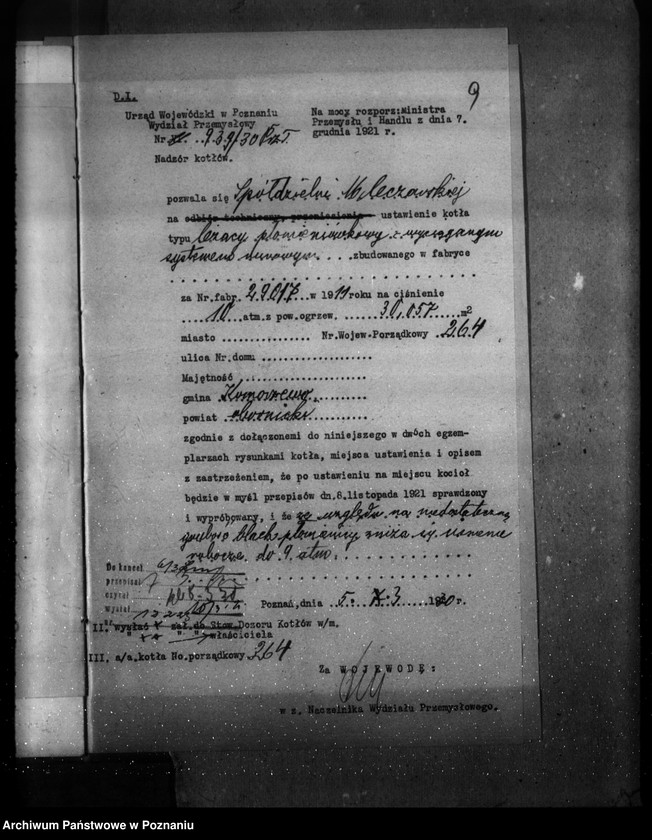 D.I.
9
Urząd Wojewódzki w Poznaniu
Wydział Przemysłowy
Nr 939/30
Nadzór kotłów.
Na mocy rozporz:Ministra
Przemysłu i Handlu z dnia 7.
grudnia 1921 r.
pozwala się Spółdzielni Mleczarskiej
na odbiór techniczny, ustawienie kotła
typu leżący płomieniówkowy z wyciąganym
systemem zbudowanego w fabryce
za Nr.fabr. 29017 w 1911 roku na ciśnienie
10 atm.z pow.ogrzew. 30,057 m2
miasto Nr.Wojew.Porządkowy 264
ulica Nr.domu
Majętność
gmina
powiat
zgodnie z dołączonemi do niniejszego w dwóch egzem-
plarzach rysunkami kotła, miejsca ustawienia i opisem
z zastrzeżeniem, że po ustawieniu na miejscu kocioł
będzie w myśl przepisów dn.8.listopada 1921 sprawdzony
i wypróbowany, i że ze względu na niedostateczną
grubość blach płomienicy zniża się ciśnienie
robocze do 9 atm.
Do kancel
przepisał
czytał
wysłał
Poznań,dnia 5. 3 1930 r.
II. wysłać zał.do Stow.Dozoru Kotłów w/m.
" " " właściciela
III. a/a.kotła No.porządkowy 264
Za WOJEWODĘ:
w z. Naczelnika Wydziału Przemysłowego.
Archiwum Państwowe w Poznaniu